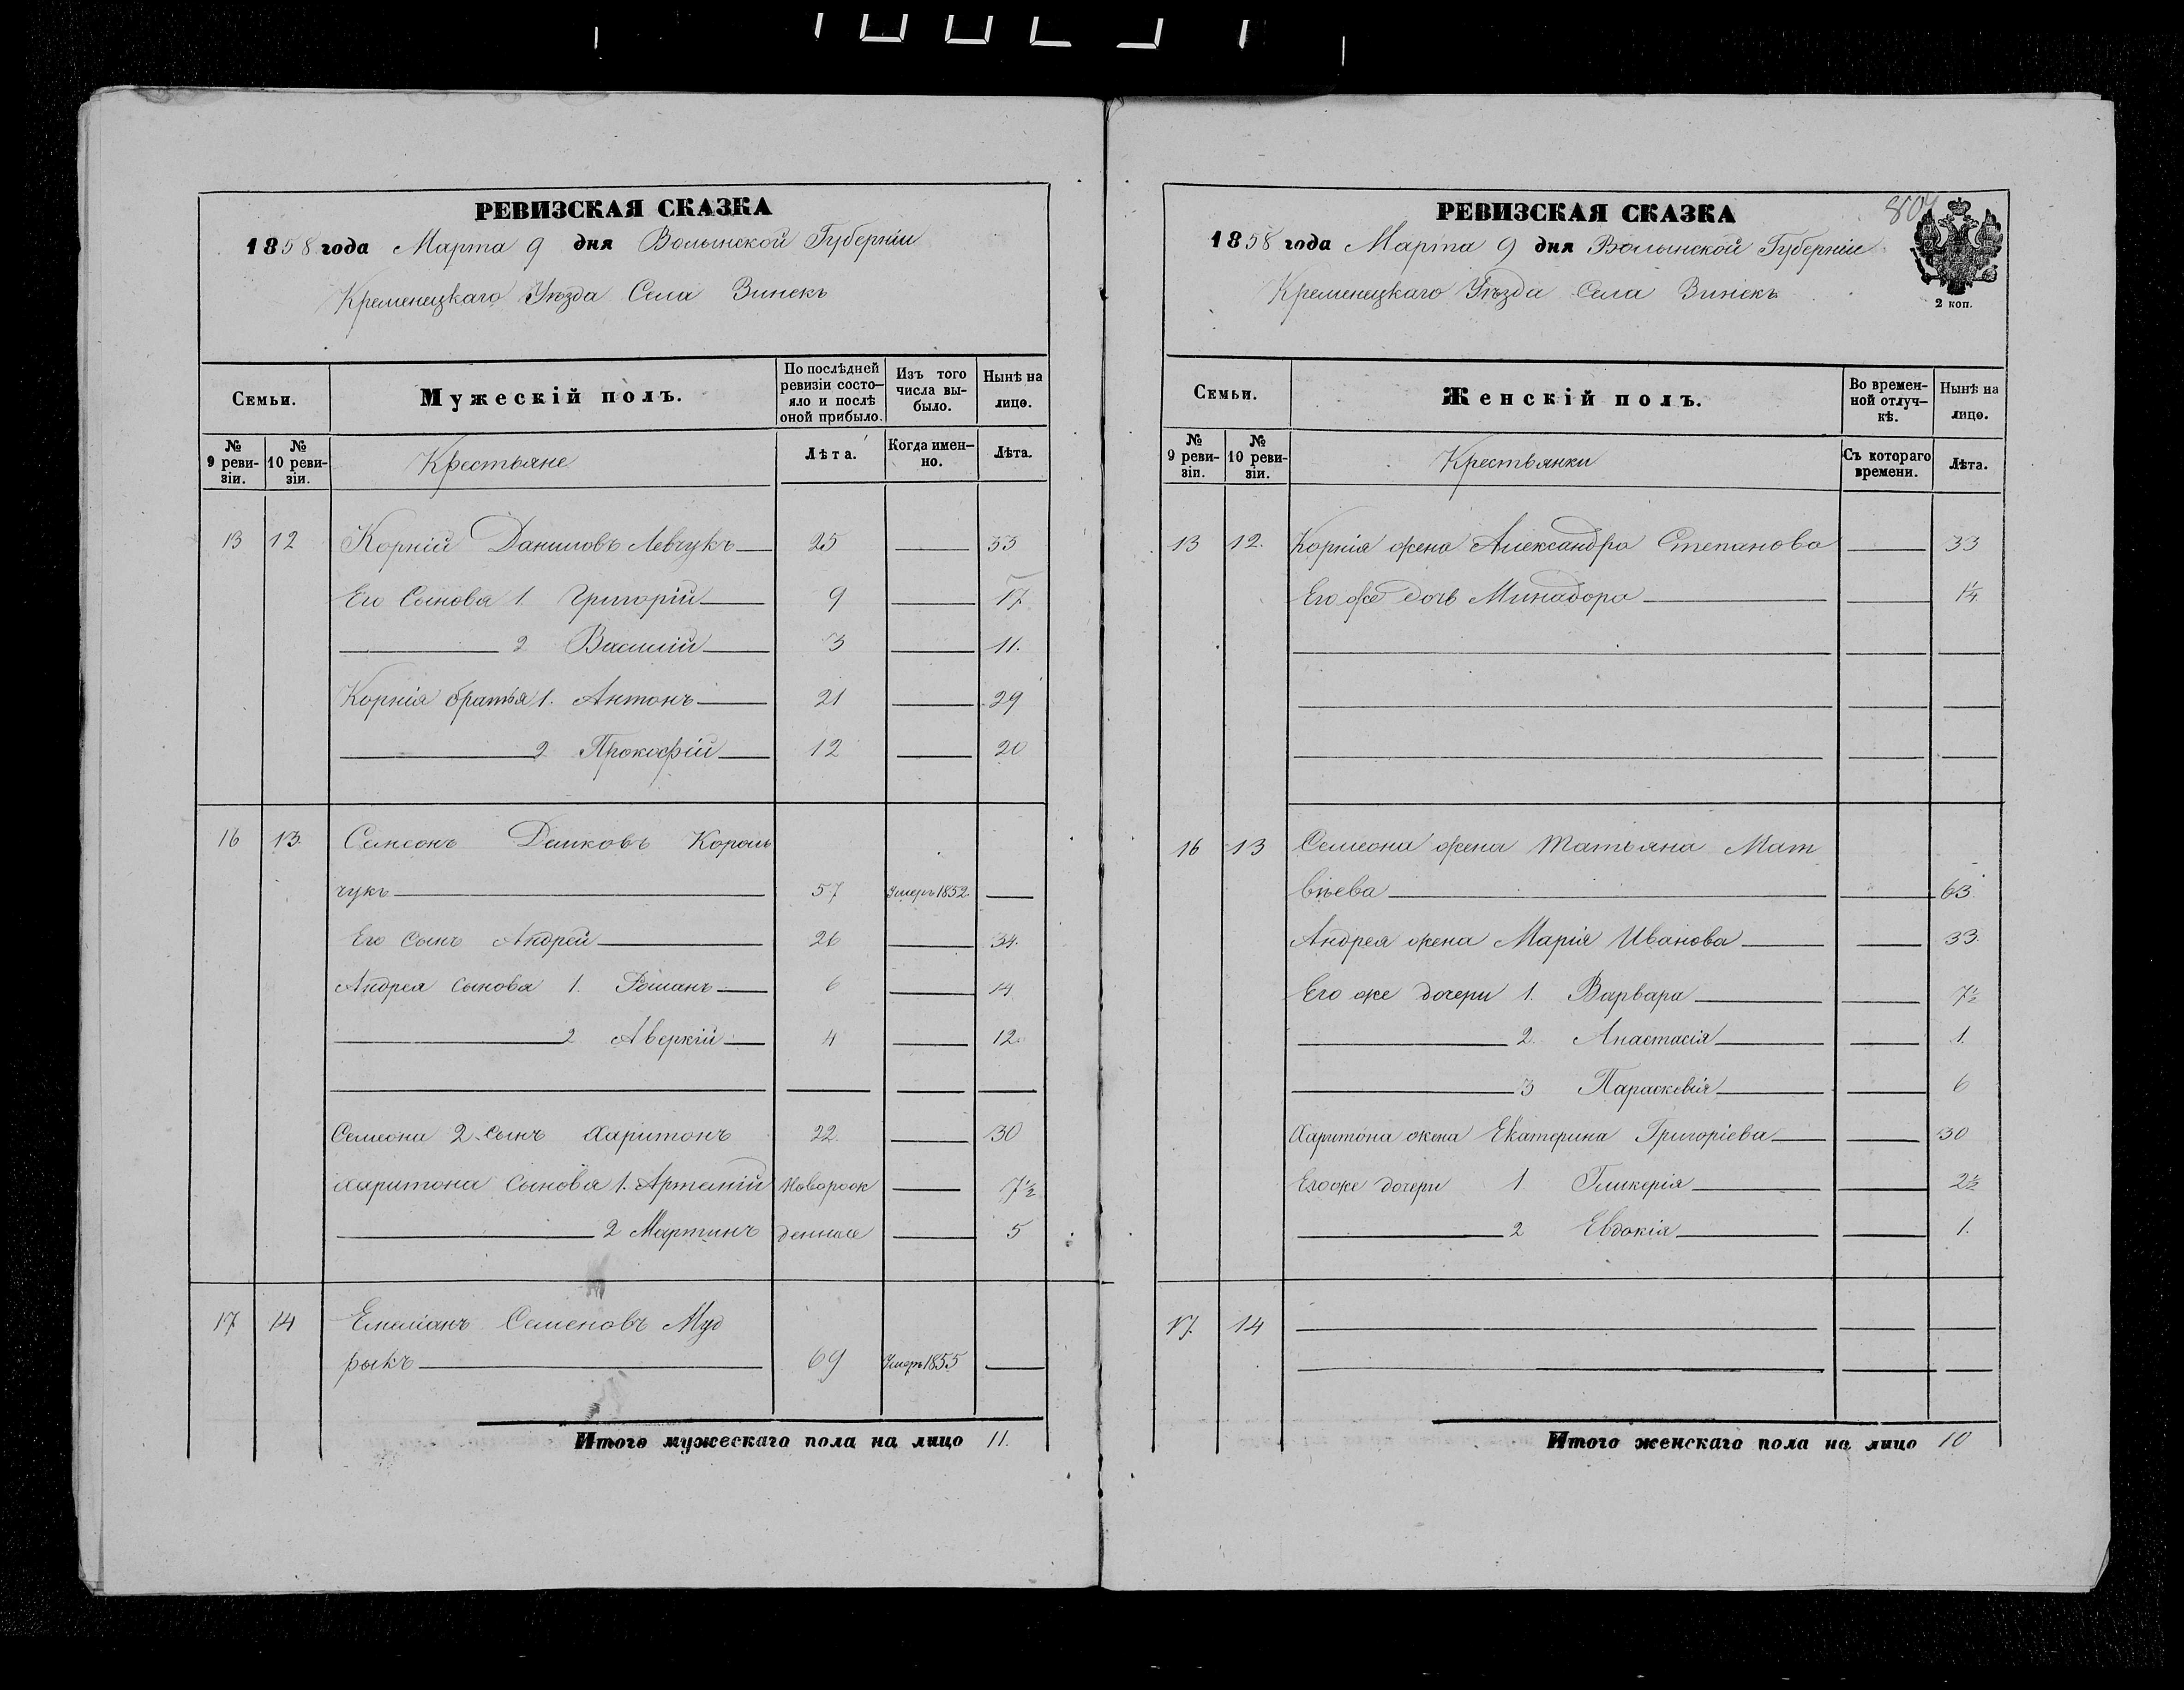 РЕВИЗСКАЯ СКАЗКА
1858 года Марта 9 дня Волынской Губерніи
Кременецкаго Уѣзда Села Зинекъ
Семьи.
Мужескій полъ.
По послѣдней ревизіи состояло и послѣ оной прибыло.
Изъ того числа выбыло.
Нынѣ на лицо.
№ 9 ревизіи.
№ 10 ревизіи.
Крестьяне
Лѣта.
Когда именно.
Лѣта.
13 12 Корній Даниловъ Левчукъ 25 33
Его Сынова 1. Григорій 9 17
2 Василій 3 11.
Корнія братья 1. Антонъ 21 29
2 Прокофій 12 20
16 13. Королъ
чукъ 57 Умеръ 1852
Его Сынъ Андрей 26 34.
Андрея Сынова 1. Романъ 6 14
2 Аверкій 4 12.
Семеона 2. Сынъ Харитонъ 22. 30
Харитона Сынова 1. Артемій Новорож 7½
2 Мартинъ денные 5
17 14 Емеліанъ Семеновъ Муд
рыкъ 69 Умеръ 1855
Итого мужескаго пола на лицо 11.
РЕВИЗСКАЯ СКАЗКА
1858 года Марта 9 дня Волынской Губерніи
Кременецкаго Уѣзда Села Зинекъ
2 коп.
Семьи.
Женскій полъ.
Во временной отлучкѣ.
Нынѣ на лицо.
№ 9 ревизіи.
№ 10 ревизіи.
Крестьянки
Съ котораго времени.
Лѣта.
13 12. Корнія жена Александра Степанова 33
Его же дочь Минадора 1¼
16 13 Семеона жена Татьяна Мат
вѣева 63
Андрея жена Марія Иванова 33.
Его же дочери 1. Варвара 7½
2. Анастасія 1.
3 Параскевія 6
Харитона жена Екатерина Григоріева 30
Его же дочери 1 Гликерія 2½
2 Евдокія 1.
17. 14
Итого женскаго пола на лицо 10